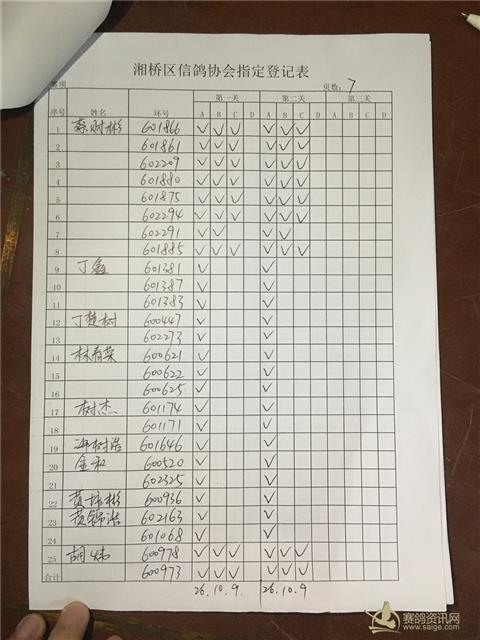 湘桥区信鸽协会指定登记表
事项 页数: 7
序号 姓名 环号 第一关 第二关 第三关
A B C D A B C D A B C D
1 蔡财彬 601866 ✓ ✓ ✓ ✓ ✓ ✓
2 601861 ✓ ✓ ✓ ✓ ✓ ✓
3 602209 ✓ ✓ ✓ ✓ ✓ ✓
4 601880 ✓ ✓ ✓ ✓ ✓ ✓
5 601875 ✓ ✓ ✓ ✓ ✓ ✓
6 602294 ✓ ✓ ✓ ✓ ✓ ✓
7 602291 ✓ ✓ ✓ ✓
8 601885 ✓ ✓ ✓ ✓ ✓ ✓
9 丁鑫 601381 ✓ ✓
10 601387 ✓ ✓
11 601383 ✓ ✓
12 丁楚树 600447 ✓ ✓
13 602273 ✓ ✓
14 林春荣 600621 ✓ ✓
15 600622 ✓ ✓
16 600625 ✓ ✓
17 树杰 601174 ✓ ✓
18 601171 ✓ ✓
19 树浩 601646 ✓ ✓
20 金和 600520 ✓ ✓
21 602325 ✓ ✓
22 黄 彬 600936 ✓ ✓
23 黄锦浩 602163 ✓ ✓
24 601068 ✓ ✓
25 胡炜 600978 ✓ ✓ ✓ ✓ ✓ ✓
合计 600973 ✓ ✓ ✓ ✓ ✓ ✓
26. 10. 9. 26. 10. 9
赛鸽资讯网
www.saige.com